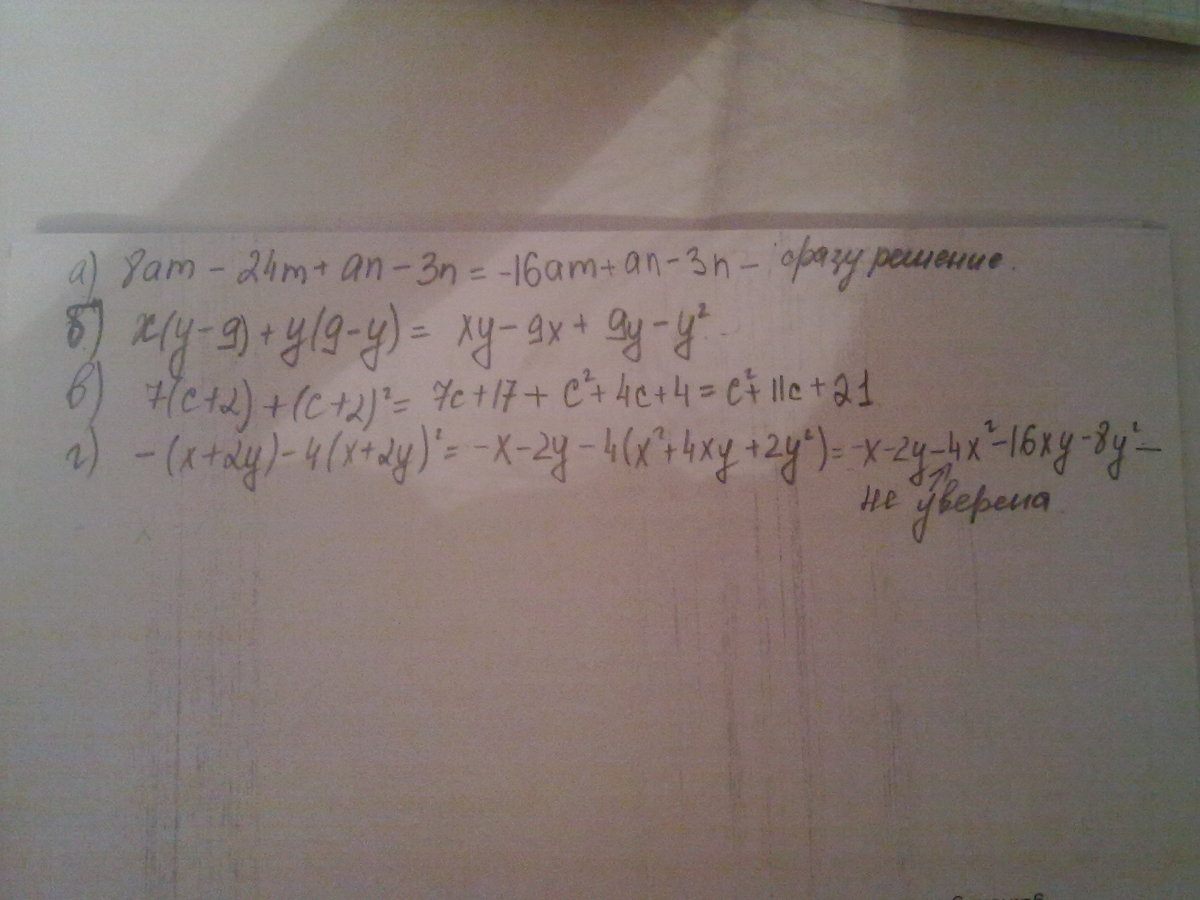 а) 8am - 24m + an - 3n = -16am + an - 3n - сразу решение.
б) x(y-9) + y(9-y) = xy - 9x + 9y - y²
в) 7(c+2) + (c+2)² = 7c + 17 + c² + 4c + 4 = c² + 11c + 21
г) -(x+2y) - 4(x+2y)² = -x - 2y - 4(x² + 4xy + 2y²) = -x - 2y - 4x² - 16xy - 8y² —
не уверена